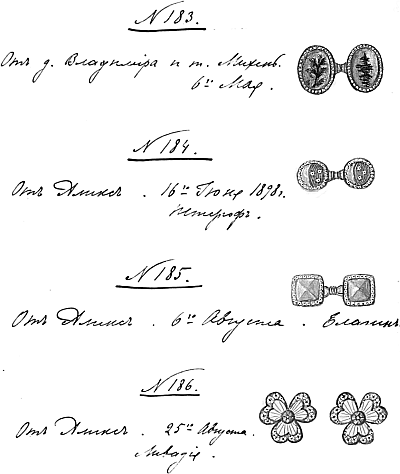 N 183.
Отъ д. Владиміра и т. Михень.
6го Мая.
N 184.
Отъ Аликсъ. 16го Іюня 1898г.
Петергофъ.
N 185.
Отъ Аликсъ. 6го Августа. Елагинъ.
N 186.
Отъ Аликсъ. 25го Августа.
Ливадія.